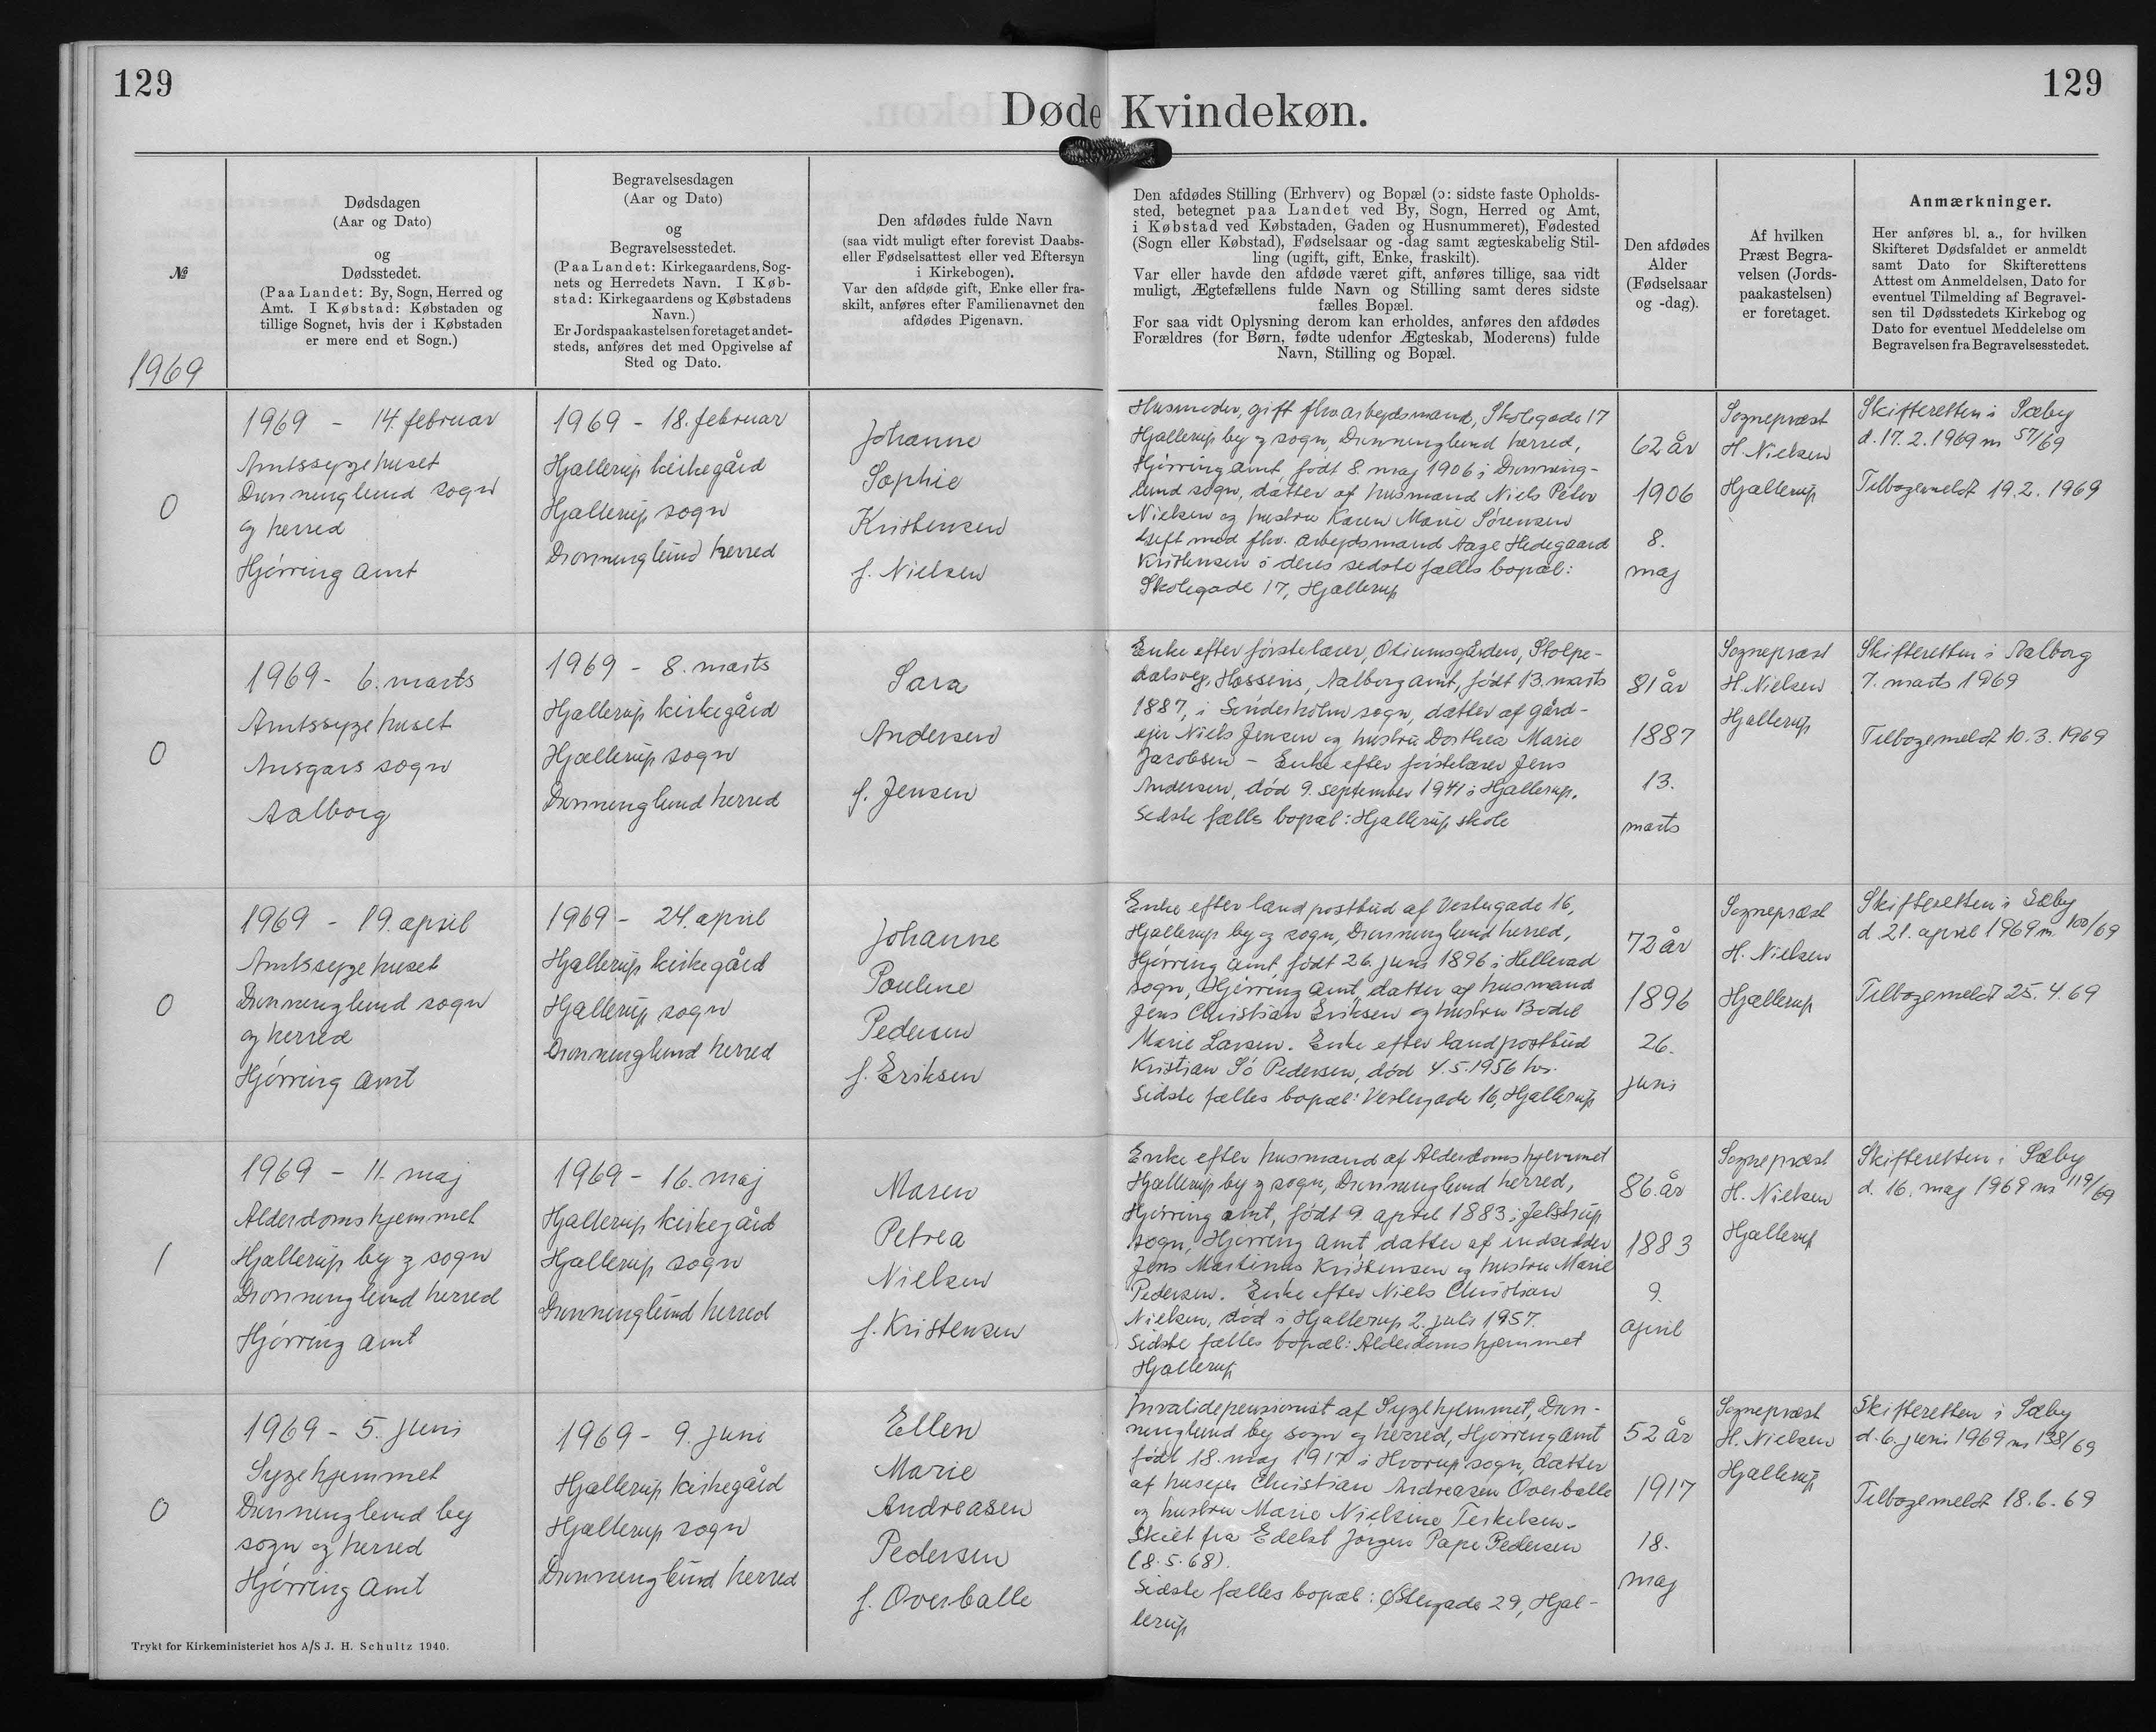 129
129
Døde Kvindekøn.
№
1969
Dødsdagen
(Aar og Dato)
og
Dødsstedet.
(Paa Landet: By, Sogn, Herred og
Amt. I Købstad: Købstaden og
tillige Sognet, hvis der i Købstaden
er mere end et Sogn.)
Begravelsesdagen
(Aar og Dato)
og
Begravelsesstedet.
(Paa Landet: Kirkegaardens, Sog-
nets og Herredets Navn. I Køb-
stad: Kirkegaardens og Købstadens
Navn.)
Er Jordspaakastelsen foretaget andet-
steds, anføres det med Opgivelse af
Sted og Dato.
Den afdødes fulde Navn
(saa vidt muligt efter forevist Daabs-
eller Fødselsattest eller ved Eftersyn
i Kirkebogen).
Var den afdøde gift, Enke eller fra-
skilt, anføres efter Familienavnet den
afdødes Pigenavn.
Den afdødes Stilling (Erhverv) og Bopæl (ɔ: sidste faste Opholds-
sted, betegnet paa Landet ved By, Sogn, Herred og Amt,
i Købstad ved Købstaden, Gaden og Husnummeret), Fødested
(Sogn eller Købstad), Fødselsaar og -dag samt ægteskabelig Stil-
ling (ugift, gift, Enke, fraskilt).
Var eller havde den afdøde været gift, anføres tillige, saa vidt
muligt, Ægtefællens fulde Navn og Stilling samt deres sidste
fælles Bopæl.
For saa vidt Oplysning derom kan erholdes, anføres den afdødes
Forældres (for Børn, fødte udenfor Ægteskab, Moderens) fulde
Navn, Stilling og Bopæl.
Den afdødes
Alder
(Fødselsaar
og -dag).
Af hvilken
Præst Begra-
velsen (Jords-
paakastelsen)
er foretaget.
Anmærkninger.
Her anføres bl. a., for hvilken
Skifteret Dødsfaldet er anmeldt
samt Dato for Skifterettens
Attest om Anmeldelsen, Dato for
eventuel Tilmelding af Begravel-
sen til Dødsstedets Kirkebog og
Dato for eventuel Meddelelse om
Begravelsen fra Begravelsesstedet.
0
1969 - 14. februar
Amtssygehuset
Dronninglund sogn
og herred
Hjørring amt
1969 - 18. februar
Hjallerup kirkegård
Hjallerup sogn
Dronninglund herred
Johanne
Sophie
Kristensen
f. Nielsen
Husmoder, gift fhv arbejdsmand, Skolegade 17
Hjallerup by og sogn, Dronninglund herred,
Hjørring amt, født 8. maj 1906 i Dronning-
lund sogn, datter af husmand Niels Peter
Nielsen og hustru Karen Marie Sørensen
Gift med fhv. arbejdsmand Aage Hedegaard
Kristensen i deres sidste fælles bopæl:
Skolegade 17, Hjallerup
62 år
1906
8.
maj
Sognepræst
H. Nielsen
Hjallerup
Skifteretten i Sæby
d. 17. 2. 1969 nr 57/69
Tilbagemeldt 19. 2. 1969
0
1969 - 6. marts
Amtssygehuset
Ansgars sogn
Aalborg
1969 - 8. marts
Hjallerup kirkegård
Hjallerup sogn
Dronninglund herred
Sara
Andersen
f. Jensen
Enke efter førstelærer, Otiumsgården, Stolpe-
dalsvej, Hasseris, Aalborg amt, født 13. marts
1887, i Sønderholm sogn, datter af gård-
ejer Niels Jensen og hustru Dorthea Marie
Jacobsen - Enke efter førstelærer Jens
Andersen, død 9. september 1941 i Hjallerup.
Sidste fælles bopæl: Hjallerup skole
81 år
1887
13.
marts
Sognepræst
H. Nielsen
Hjallerup
Skifteretten i Aalborg
7. marts 1969
Tilbagemeldt 10. 3. 1969
0
1969 - 19. april
Amtssygehuset
Dronninglund sogn
og herred
Hjørring amt
1969 - 24. april
Hjallerup kirkegård
Hjallerup sogn
Dronninglund herred
Johanne
Pouline
Pedersen
f. Eriksen
Enke efter landpostbud af Vestergade 16,
Hjallerup by og sogn, Dronninglund herred,
Hjørring amt, født 26. juni 1896 i Hellevad
sogn, Hjørring amt, datter af husmand
Jens Christian Eriksen og hustru Bodil
Marie Larsen. Enke efter landpostbud
Kristian Sø Pedersen, død 4.5.1956 hr.
Sidste fælles bopæl: Vestergade 16, Hjallerup
72 år
1896
26.
juni
Sognepræst
H. Nielsen
Hjallerup
Skifteretten i Sæby
d. 21. april 1969 nr. 100/69
Tilbagemeldt 25. 4. 69
1
1969 - 11. maj
Alderdomshjemmet
Hjallerup by og sogn
Dronninglund herred
Hjørring amt
1969 - 16. maj
Hjallerup kirkegård
Hjallerup sogn
Dronninglund herred
Maren
Petrea
Nielsen
f. Kristensen
Enke efter husmand af Alderdomshjemmet
Hjallerup by og sogn, Dronninglund herred,
Hjørring amt, født 9. april 1883 i Jelstrup
sogn, Hjørring amt datter af indsidder
Jens Martinus Kristensen og hustru Marie
Pedersen. Enke efter Niels Christian
Nielsen, død i Hjallerup 2. juli 1957.
Sidste fælles bopæl: Alderdomshjemmet
Hjallerup
86. år
1883
9.
april
Sognepræst
H. Nielsen
Hjallerup
Skifteretten i Sæby
d. 16. maj 1969 nr 119/69
0
1969 - 5. juni
Sygehjemmet
Dronninglund by
sogn og herred
Hjørring amt
1969 - 9. juni
Hjallerup kirkegård
Hjallerup sogn
Dronninglund herred
Ellen
Marie
Andreasen
Pedersen
f. Overballe
Invalidepensionist af Sygehjemmet, Dron-
ninglund by sogn og herred, Hjørring amt
født 18. maj 1917 i Hvorup sogn, datter
af husejer Christian Andreasen Overballe
og hustru Marie Nielsine Terkelsen.
Skilt fra Edelst Jørgen Pape Pedersen
(8.5.68).
Sidste fælles bopæl: Østergade 29, Hjal-
lerup
52 år
1917
18.
maj
Sognepræst
H. Nielsen
Hjallerup
Skifteretten i Sæby
d. 6. juni 1969 nr 138/69
Tilbagemeldt 18. 6. 69
Trykt for Kirkeministeriet hos A/S J. H. Schultz 1940.